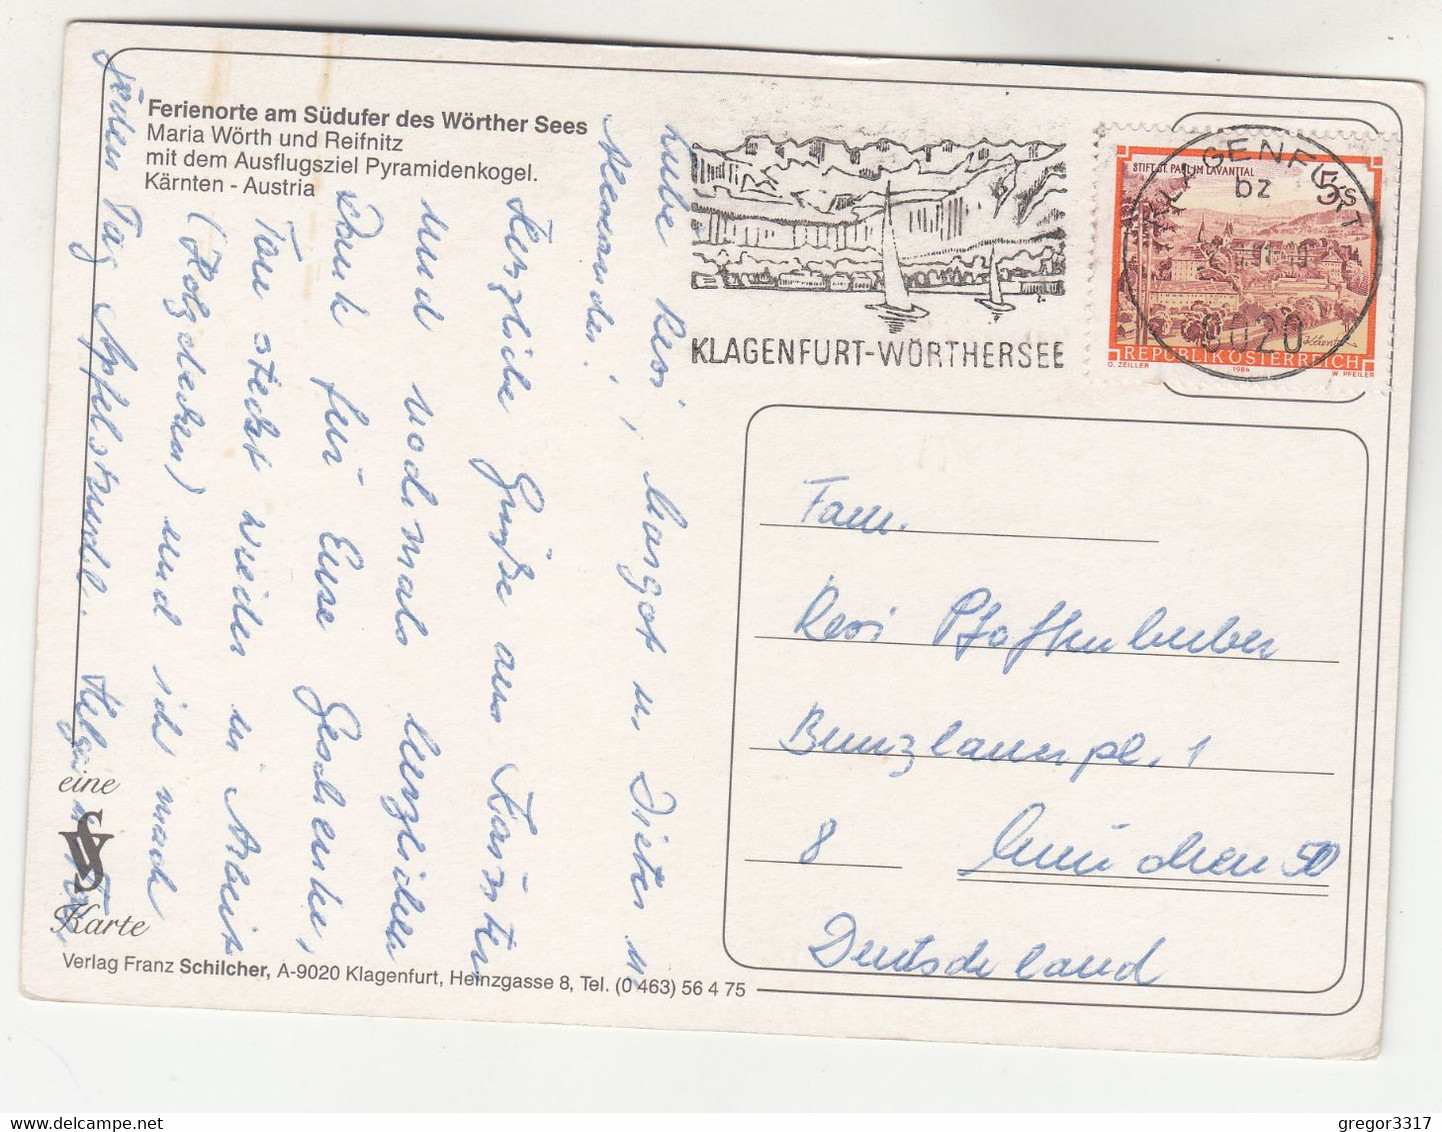 Ferienorte am Südufer des Wörther Sees
Maria Wörth und Reifnitz
mit dem Ausflugsziel Pyramidenkogel.
Kärnten - Austria
KLAGENFURT-WÖRTHERSEE
KLAGENFURT
bz
9020
STIFT ST. PAUL IM LAVANTTAL
5s
Kärnten
REPUBLIK ÖSTERREICH
O. ZEILLER 1984 W. PFEILER
Liebe Resi, Margot u. Dieter u.
Alexander!
Herzliche Grüße aus Kärnten
und nochmals herzlichen
Dank für Eure Geschenke,
Toni steckt wieder in Arbeit
(Holzdecken) und ich mach
jeden Tag Apfelstrudl. Helga u. Toni
Fam.
Resi Pfaffenhuber
Bunzlauerpl. 1
8 München 50
Deutschland
eine
VS
Karte
Verlag Franz Schilcher, A-9020 Klagenfurt, Heinzgasse 8, Tel. (0 463) 56 4 75
gregor3317